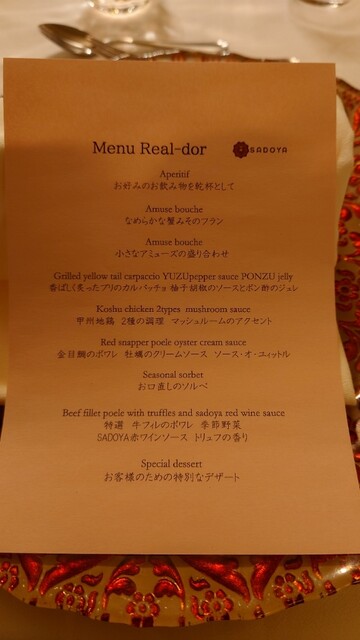 Menu Real-dor
SADOYA
Aperitif
お好みのお飲み物を乾杯として
Amuse bouche
なめらかな蟹みそのフラン
Amuse bouche
小さなアミューズの盛り合わせ
Grilled yellow tail carpaccio YUZUpepper sauce PONZU jelly
香ばしく炙ったブリのカルパッチョ 柚子胡椒のソースとポン酢のジュレ
Koshu chicken 2types mushroom sauce
甲州地鶏 2種の調理 マッシュルームのアクセント
Red snapper poele oyster cream sauce
金目鯛のポワレ 牡蠣のクリームソース ソース・オ・ユィットル
Seasonal sorbet
お口直しのソルベ
Beef fillet poele with truffles and sadoya red wine sauce
特選 牛フィレのポワレ 季節野菜
SADOYA赤ワインソース トリュフの香り
Special dessert
お客様のための特別なデザート